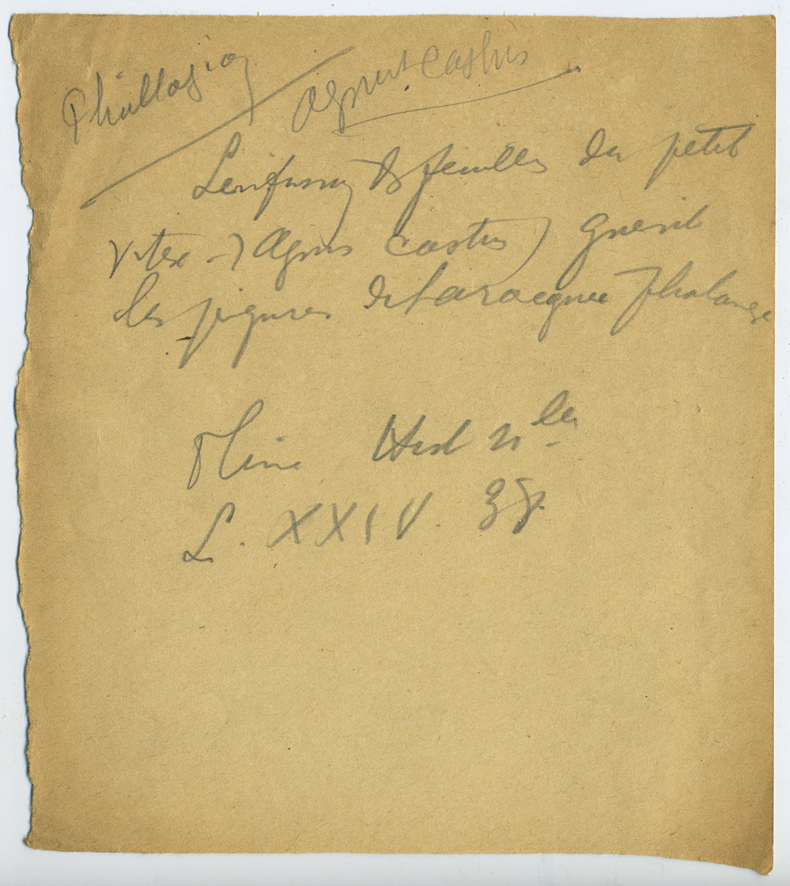 Agnus castus
L'infusion de feuilles du petit
Vitex - (Agnus castus) guérit
les piqures de l'araignée Phalange
Pline Hist nlle
L. XXIV. 38.